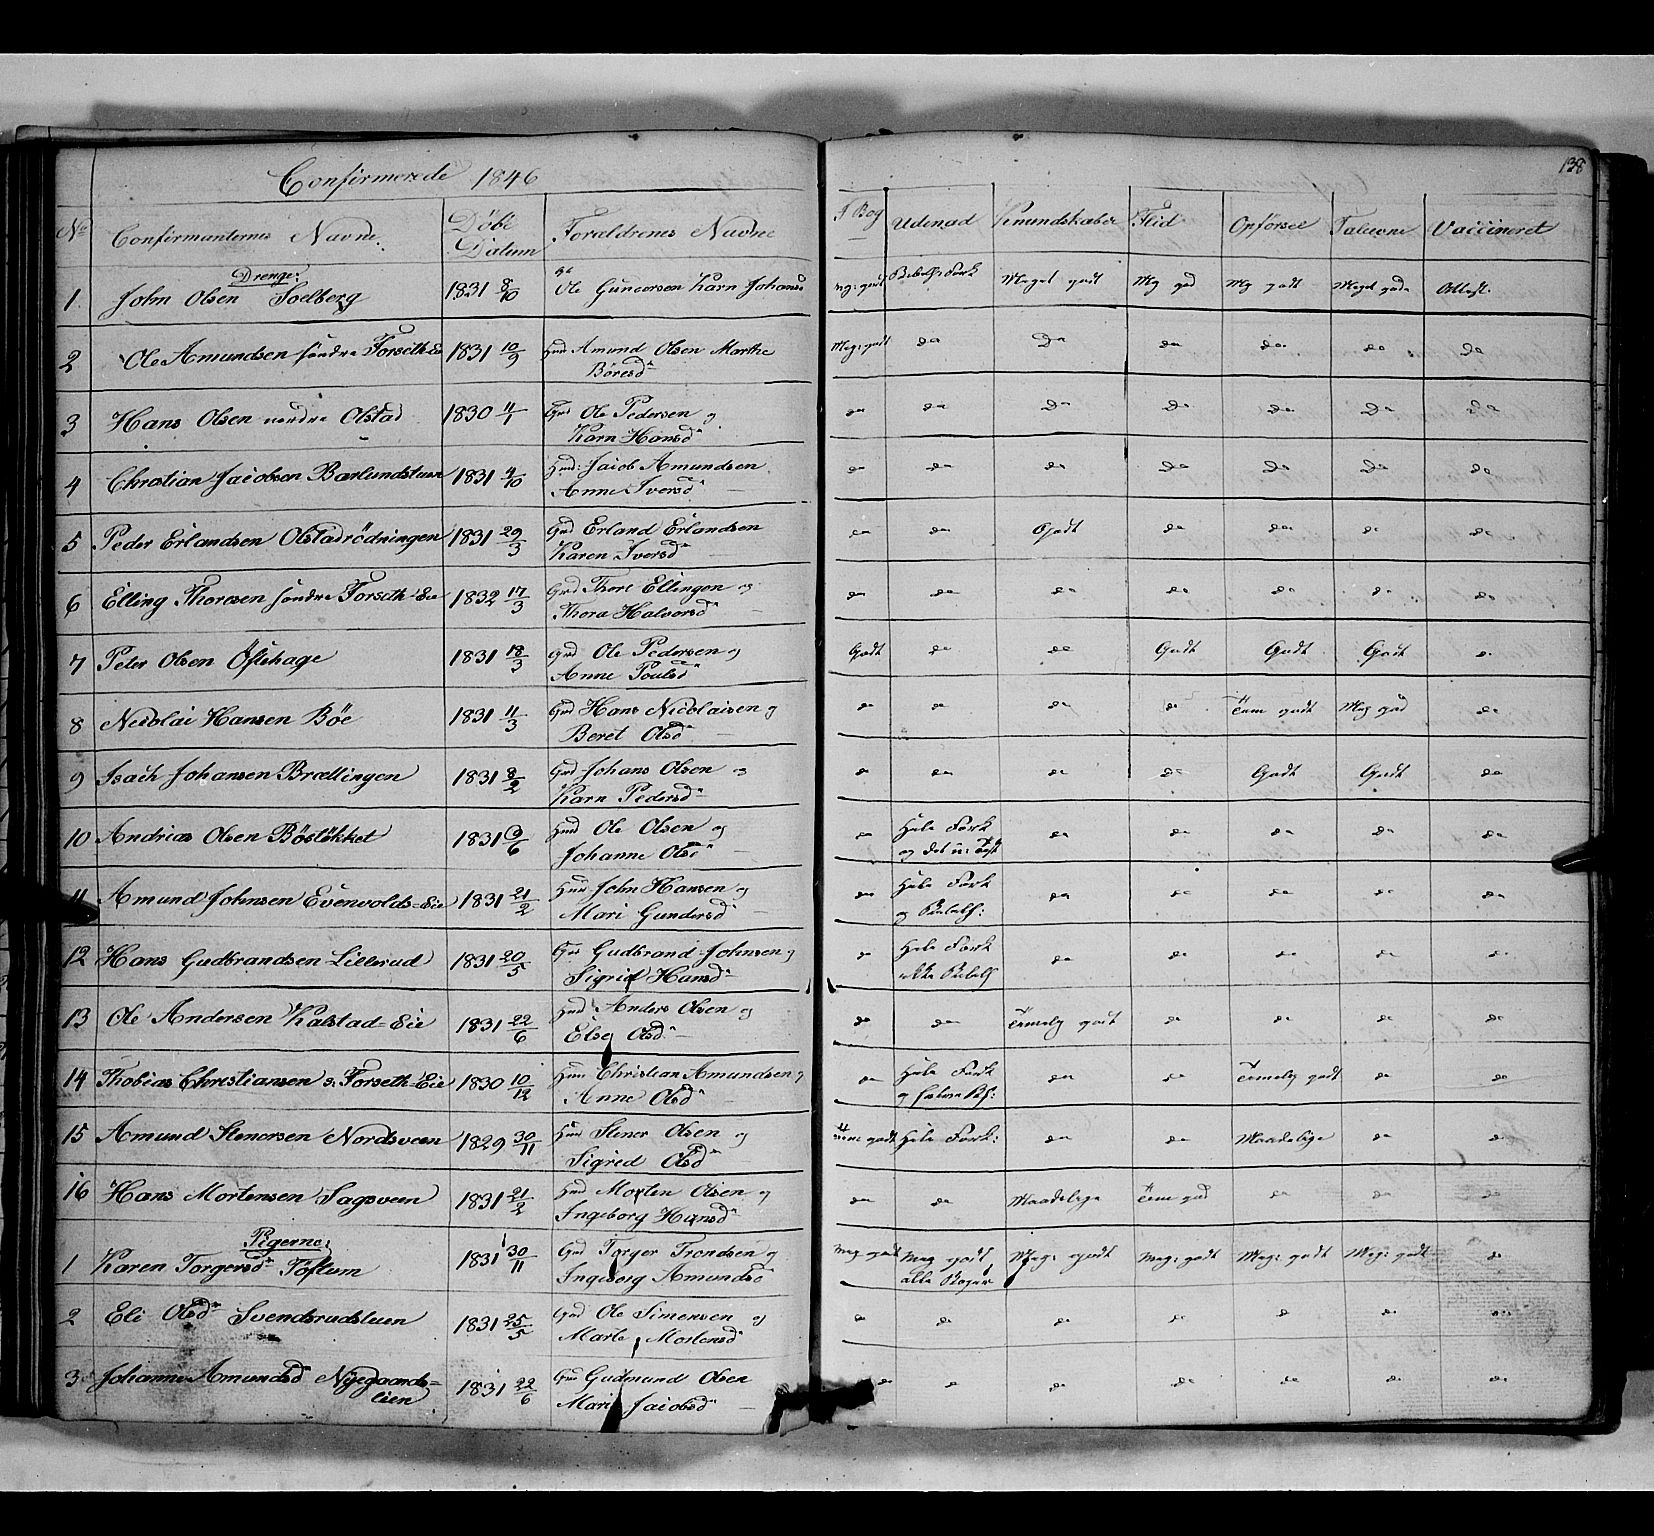 138
Confirmerede 1846
No Confirmanternes Navne. Döbe Datum Forældrenes Navne I Bog Udenad Kundskaber Flid Opförsel Taleevne Vaccineret
Drenge:
1. John Olsen Soelberg 1831 8/10 Ole Karn Johansd meg: godt Meget godt Mg god Mg godt Meget gode Attest.
2 Ole Amundsen söndre Forseth-Eie 1831 10/9 Hmd Amund Olsen Marthe Meg: godt do Do do do do Do
Böresd
3 Hans Olsen nordre Olstad 1830 11/1 Gmd Ole Pedersen og do do Do Do Do Do Do
Karn Hansd
4 Christian Jacobsen Barlundstuen 1831 4/10 Hmd: Jacob Amundsen do do do Do Do Do do
Anne Iversd
5 Peder Erlandsen Olstadrödningen 1831 29/3 Gmd Erland Erlandsen do do Godt do do do do
Karen Iversd
6 Elling Thoresen söndre Forseth-Eie 1832 17/3 Gmd Thore Ellingsen og do do do do do do do
Thora Halvorsd
7 Peter Olsen Öftehage 1831 18/3 Gmd Ole Pedersen og Godt do do Godt Godt Godt do
Anne Poulsd
8 Nicolai Hansen Böe 1831 11/3 Gmd Hans Nicolaisen og do do do do Tem godt Meg god do
Beret Olsd
9 Isach Johansen Brællingen 1831 8/2 Gmd Johans Olsen og do do do do Godt Godt do
Karn Pedersd
10 Andrias Olsen Böeslökket 1831 9/6 Hmd Ole Olsen og do Hele Fork do do do do do
Johanne Olsd
11 Amund Johnsen Evenvolds-Eie 1831 21/2 Hmd John Hansen og do Hele Fork do do do do do
Mari Gundersd
12 Hans Gudbrandsen Lillerud 1831 20/5 Gmd Gudbrand Johnsen og do Hele Fork do do do do do
Sigrid Hansd
13 Ole Andersen Kalstad-Eie 1831 22/6 Hmd Anders Olsen og do do Temelig godt do do do do
Else Olsd
14 Thobias Christiansen s: Forseth-Eie 1830 10/12 Hmd Christian Amundsen og do Hele Fork do do Temelig godt do do
Anne Olsd
15 Amund Stenersen Nordsveen 1829 30/11 Hmd Stener Olsen og Tem godt Hele Fork: do do Maadelige do do
Sigrid Olsd
16 Hans Mortensen Sagsveen 1831 21/2 Hmd Morten Olsen og do do Maadelige Tem god do do do
Ingeborg Hansd
Pigerne:
1 Karen Torgersd Toftum 1831 30/11 Gmd Torger Trondsen og Meg godt Meg godt Meg: godt Meg: godt Meg: godt Meg: godt do
Ingeborg Amundsd alle Böger
2 Eli Olsd Svendsrudstuen 1831 25/5 Gmd Ole Simensen og do do do do do do do
Marte Mortensd
3 Johanne Amundsd Nygaards= 1831 22/6 Gmd Gudmund Olsen do do do do do do do
eien Mari Jacobsd